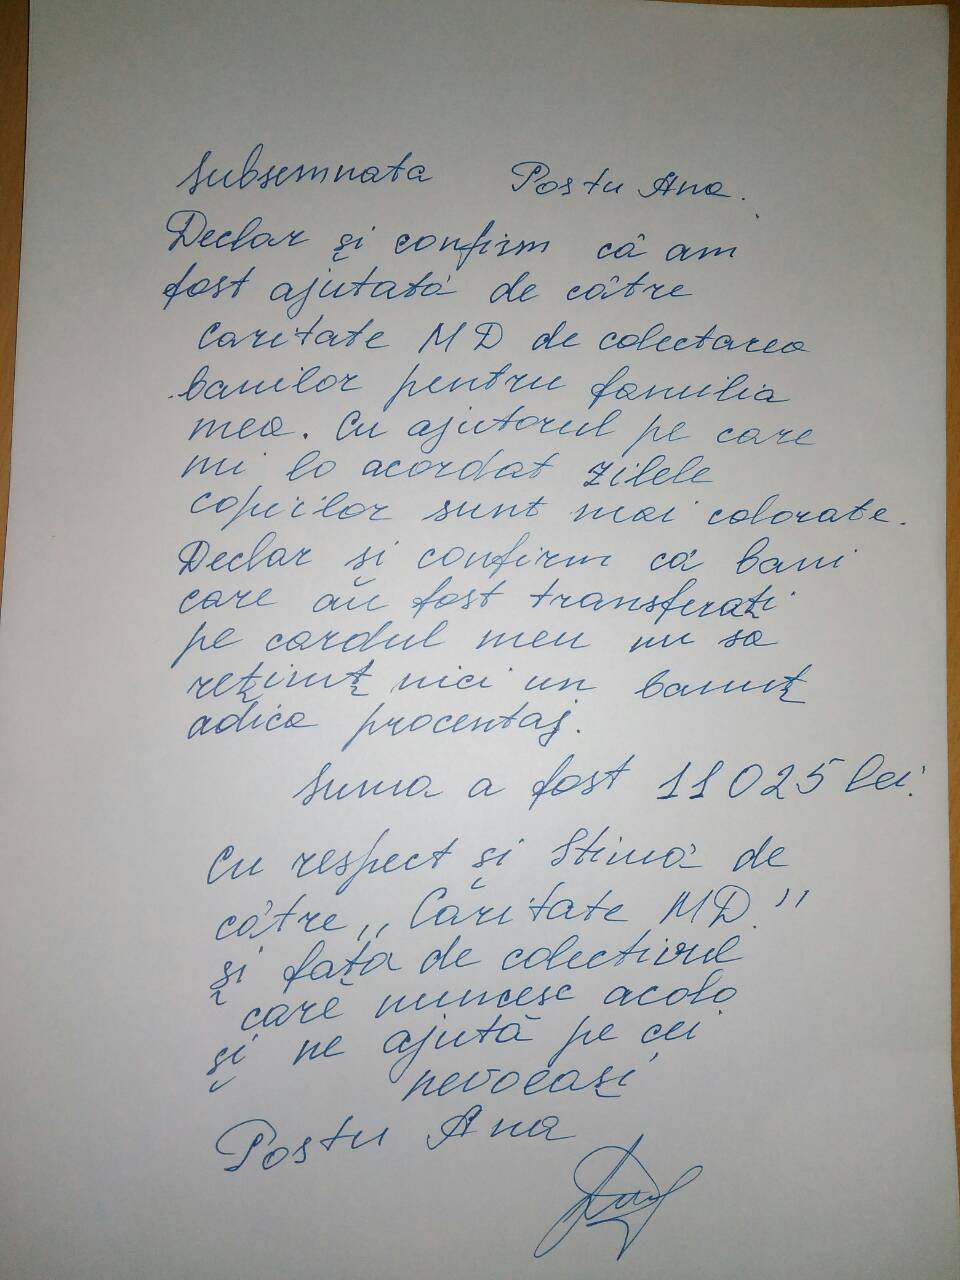 Subsemnata Postu Ana.
Declar și confirm că am
fost ajutată de către
Caritate MD de colectarea
banilor pentru familia
mea. Cu ajutorul pe care
mi lo acordat zilele
copiilor sunt mai colorate.
Declar și confirm că bani
care au fost transferați
pe cardul meu nu sa
reținut nici un banuț
adica procentaj.
Suma a fost 11025 lei.
Cu respect și Stimă de
către ,,Caritate MD."
și fața de colectivul
care muncesc acolo
și ne ajută pe cei
nevoeași
Postu Ana